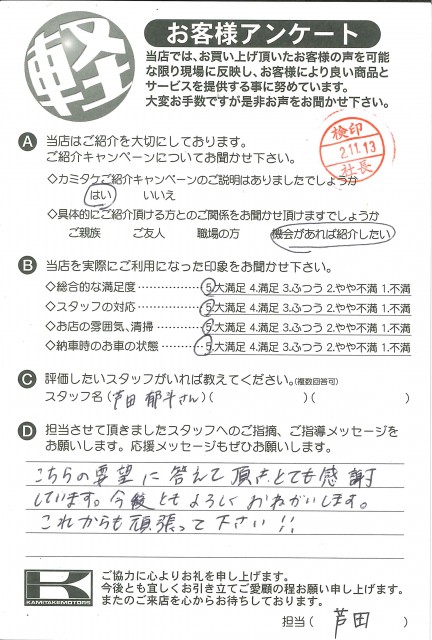 軽
お客様アンケート
当店では、お買い上げ頂いたお客様の声を可能
な限り現場に反映し、お客様により良い商品と
サービスを提供する事に努めています。
大変お手数ですが是非お声をお聞かせ下さい。
検印
2.11.13
社長
A 当店はご紹介を大切にしております。
ご紹介キャンペーンについてお聞かせ下さい。
◇カミタケご紹介キャンペーンのご説明はありましたでしょうか
はい いいえ
◇具体的にご紹介頂ける方とのご関係をお聞かせ頂けますでしょうか
ご親族 ご友人 職場の方 機会があれば紹介したい
B 当店を実際にご利用になった印象をお聞かせ下さい。
◇総合的な満足度………………5.大満足 4.満足 3.ふつう 2.やや不満 1.不満
◇スタッフの対応………………5.大満足 4.満足 3.ふつう 2.やや不満 1.不満
◇お店の雰囲気、清掃…………5.大満足 4.満足 3.ふつう 2.やや不満 1.不満
◇納車時のお車の状態…………5.大満足 4.満足 3.ふつう 2.やや不満 1.不満
C 評価したいスタッフがいれば教えてください。(複数回答可)
スタッフ名(芦田 郁斗さん)( )( )
D 担当させて頂きましたスタッフへのご指摘、ご指導メッセージを
お願いします。応援メッセージもぜひお願いします。
こちらの要望に答えて頂きとても感謝
しています。今後ともよろしくおねがいします。
これからも頑張って下さい!!
K
KAMITAKEMOTORS
ご協力に心よりお礼を申し上げます。
今後とも宜しくお引き立てご愛顧の程お願い申し上げます。
またのご来店を心からお待ちしております。
担当( 芦田 )